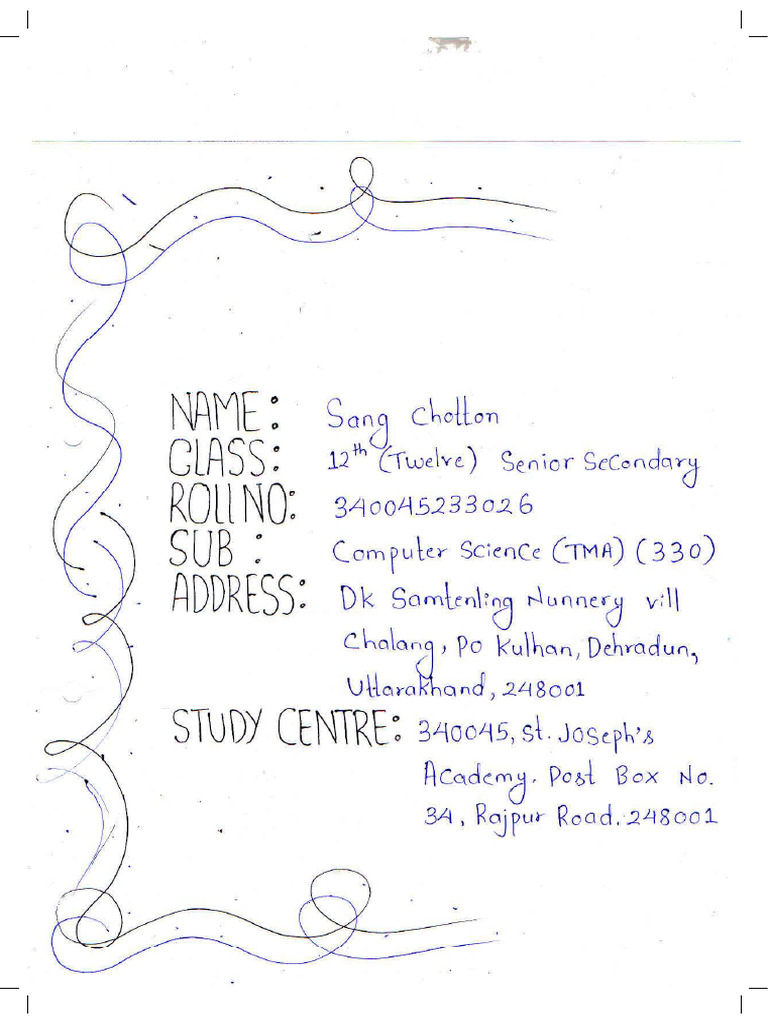 NAME: Sang Chotton
CLASS: 12th (Twelve) Senior Secondary
ROLL NO: 340045233026
SUB : Computer Science (TMA) (330)
ADDRESS: Dk Samtenling Nunnery vill
Chalang, Po Kulhan, Dehradun,
Uttarakhand, 248001
STUDY CENTRE: 340045, St. Joseph's
Academy. Post Box No.
34, Rajpur Road. 248001